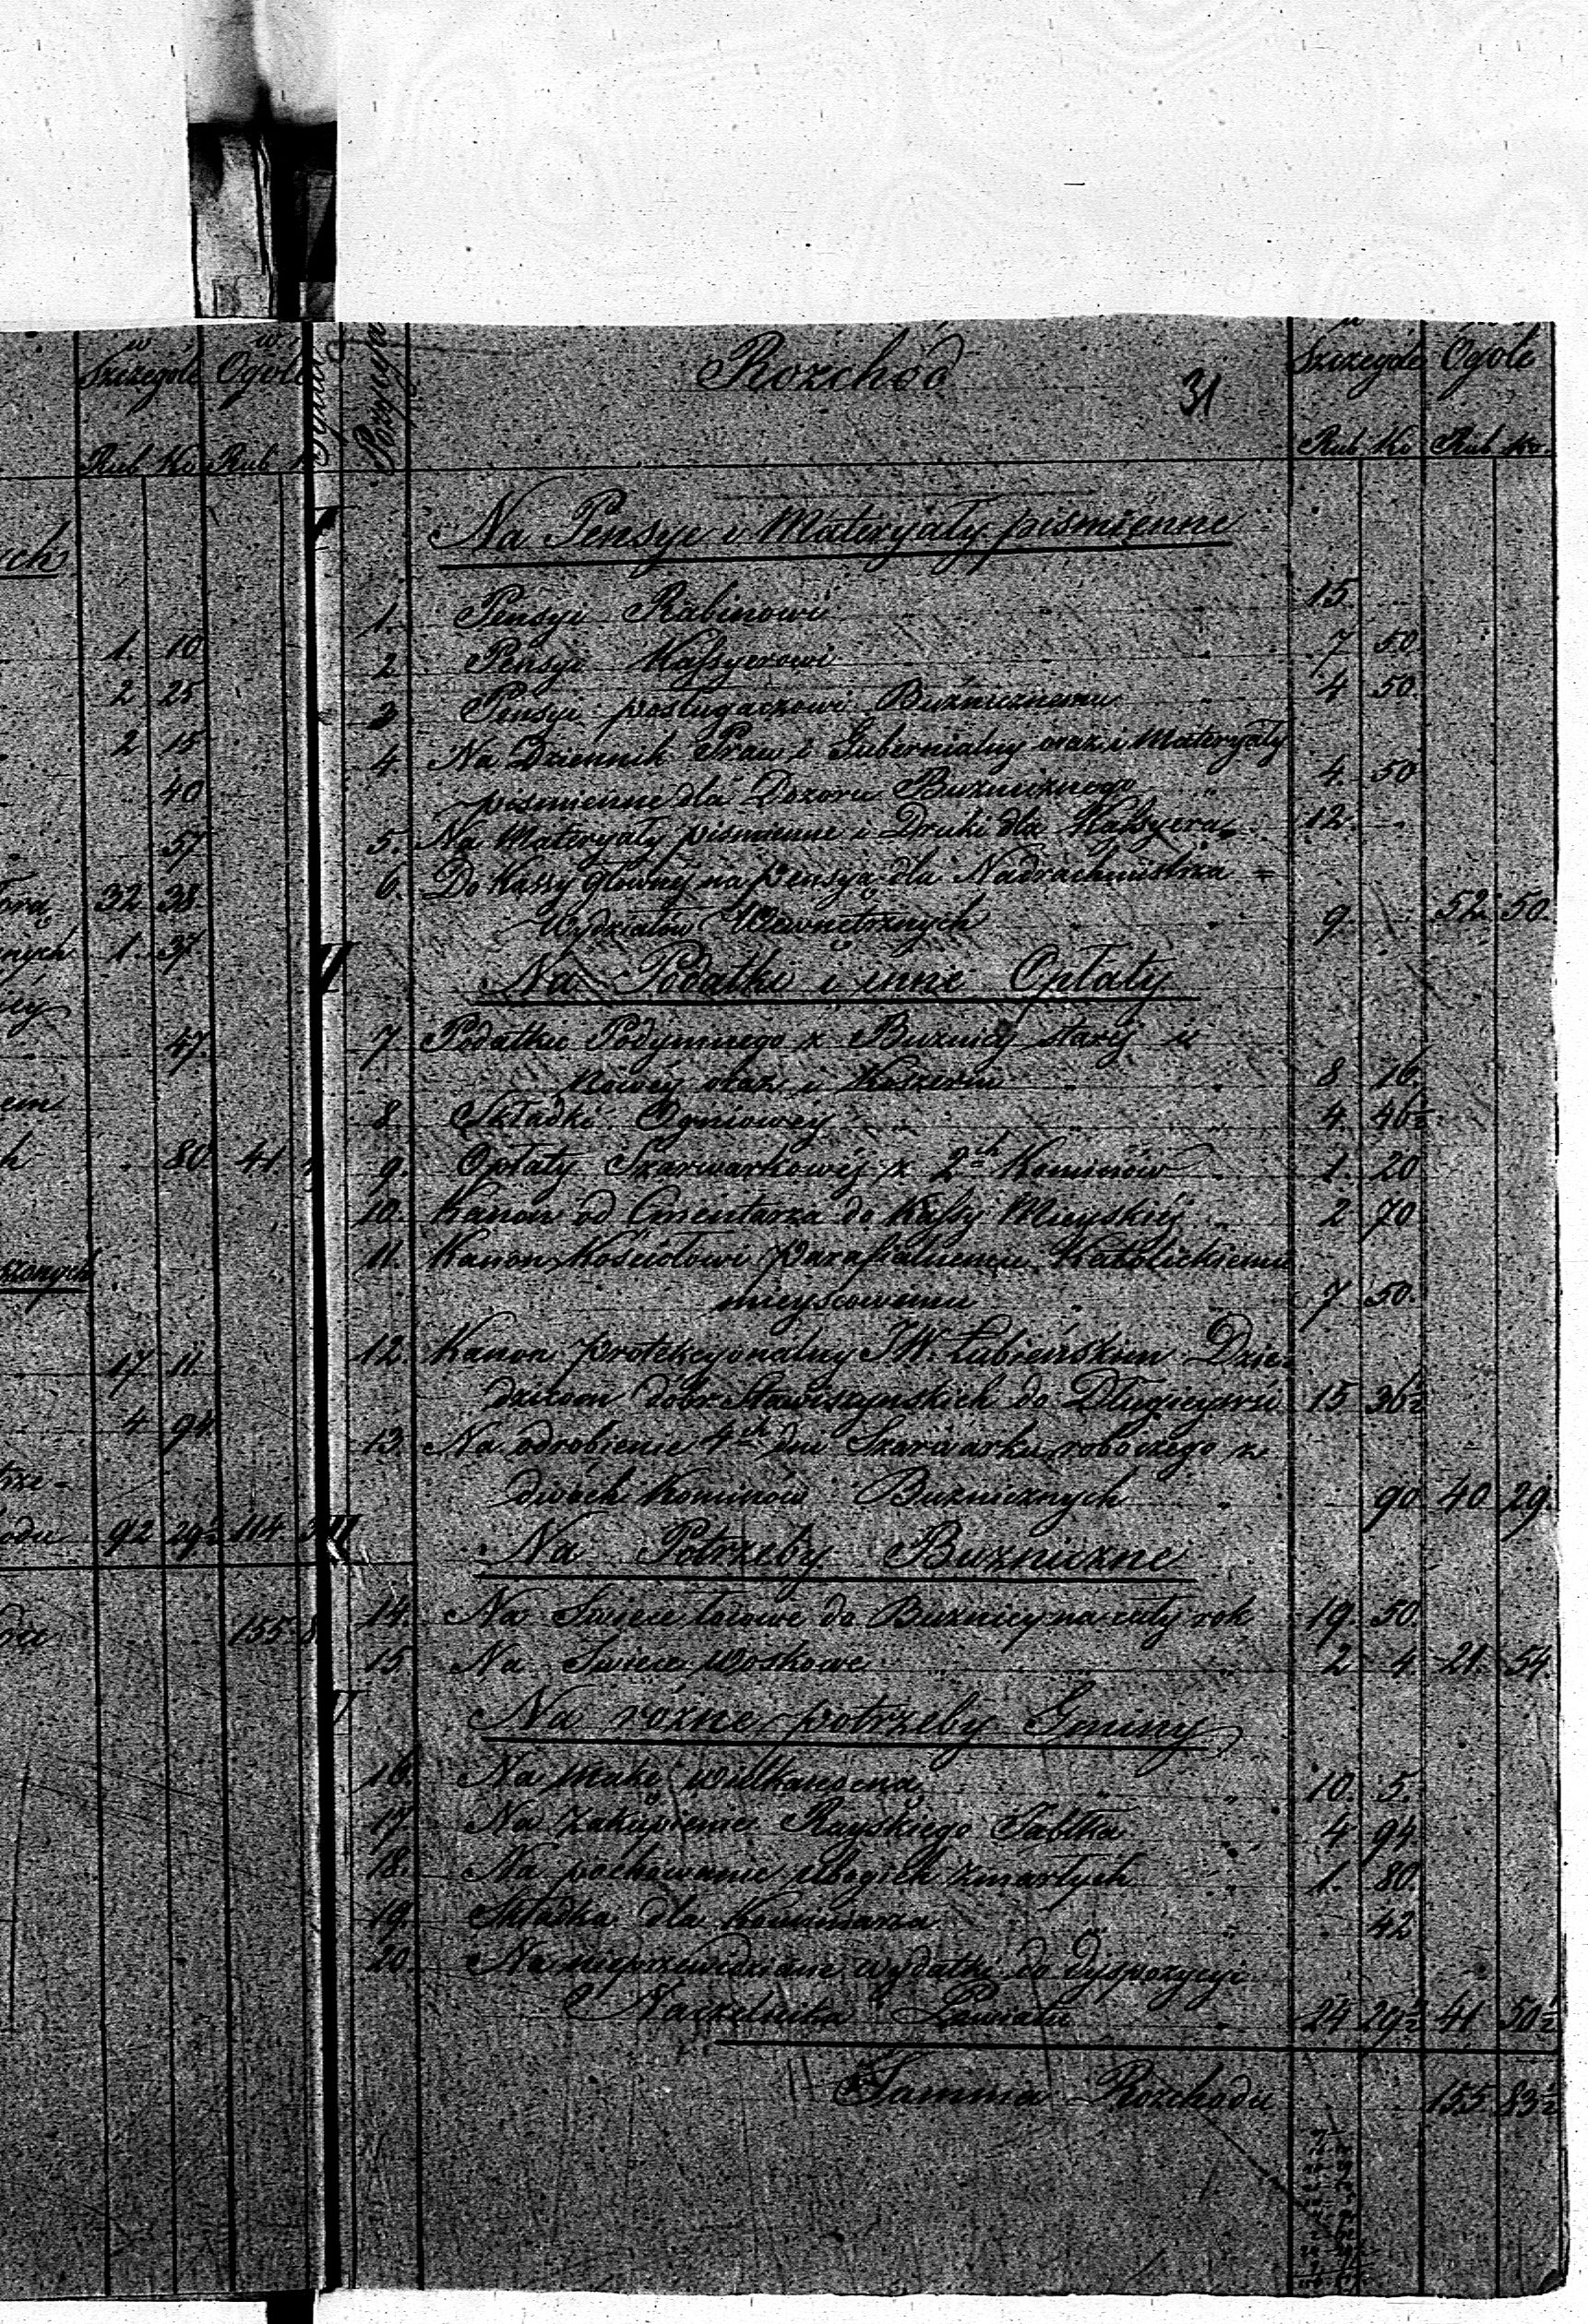 w Szczególe
w Ogóle
Rub Ko Rub
ych
1. 10
2 25
2 15
40
57
Torą 32 38
nych 1. 37
47.
em
h 80 41
17 11.
4 94
odu 92 29½ 114
155 8
Pozycya
Rozchód
31
w Szczególe
Ogóle
Rub Ko Rub Ko.
I
Na Pensye i Materyały piśmienne
1. Pensyi Rabinowi 15
2 Pensyi Kassyerowi 7 50
3 Pensyi posługaczowi Bużnicznemu 4 50
4. Na Dziennik Praw i Gubernialny oraz i Materyały
piśmienne dla Dozoru Bużnicznego 4. 50
5. Na Materyały piśmienne i Druki dla Kassyera 12.
6. Do Kassy głównéy na pensyą dla Nadrachmistrza =
Wydziałów Wewnetrznych 9. 52. 50.
II
Na Podatki i inne Opłaty
7 Podatku Podymnego z Bużnicy staréj i
nowéy oraz i Koszeru 8 16.
8 Składki Ogniowéy 4. 46½
9. Opłaty Szarwarkowéj z 2ch Kominów 1. 20
10. Kanon od Cmentarza do Kassy Mieyskiéj 2 70
11. Kanon Kościołowi parafialnemu Katolickiemu
mieyscowemu 7. 50.
12. Kanon protekcyonalny JW. Łubieńskim Dzie=
dzicom dóbr Stawiszynskich do 15 36½
13. Na odrobienie 4ch dni Szarwarku roboczego z
dwóch Kominów Bużnicznych 90 40 29.
III
Na Potrzeby Bużniczne
14. Na Świece łoiowe do Bużnicy na cały rok 19. 50.
15. Na Świece Woskowe 2 4 21. 54.
Na różne potrzeby Gminy
16. Na mąkę wielkanocną 10. 5.
17. Na zakupienie Rayskiego Jabłka 4 94
18. Na pochowanie ubogich zmarłych 1. 80.
19. Składka dla Kominiarza 42
20. Na nieprzewidziane wydatki do dyspozycyi
Naczelnika Powiatu 24 29½ 41 50½
Summa Rozchodu 155 83½